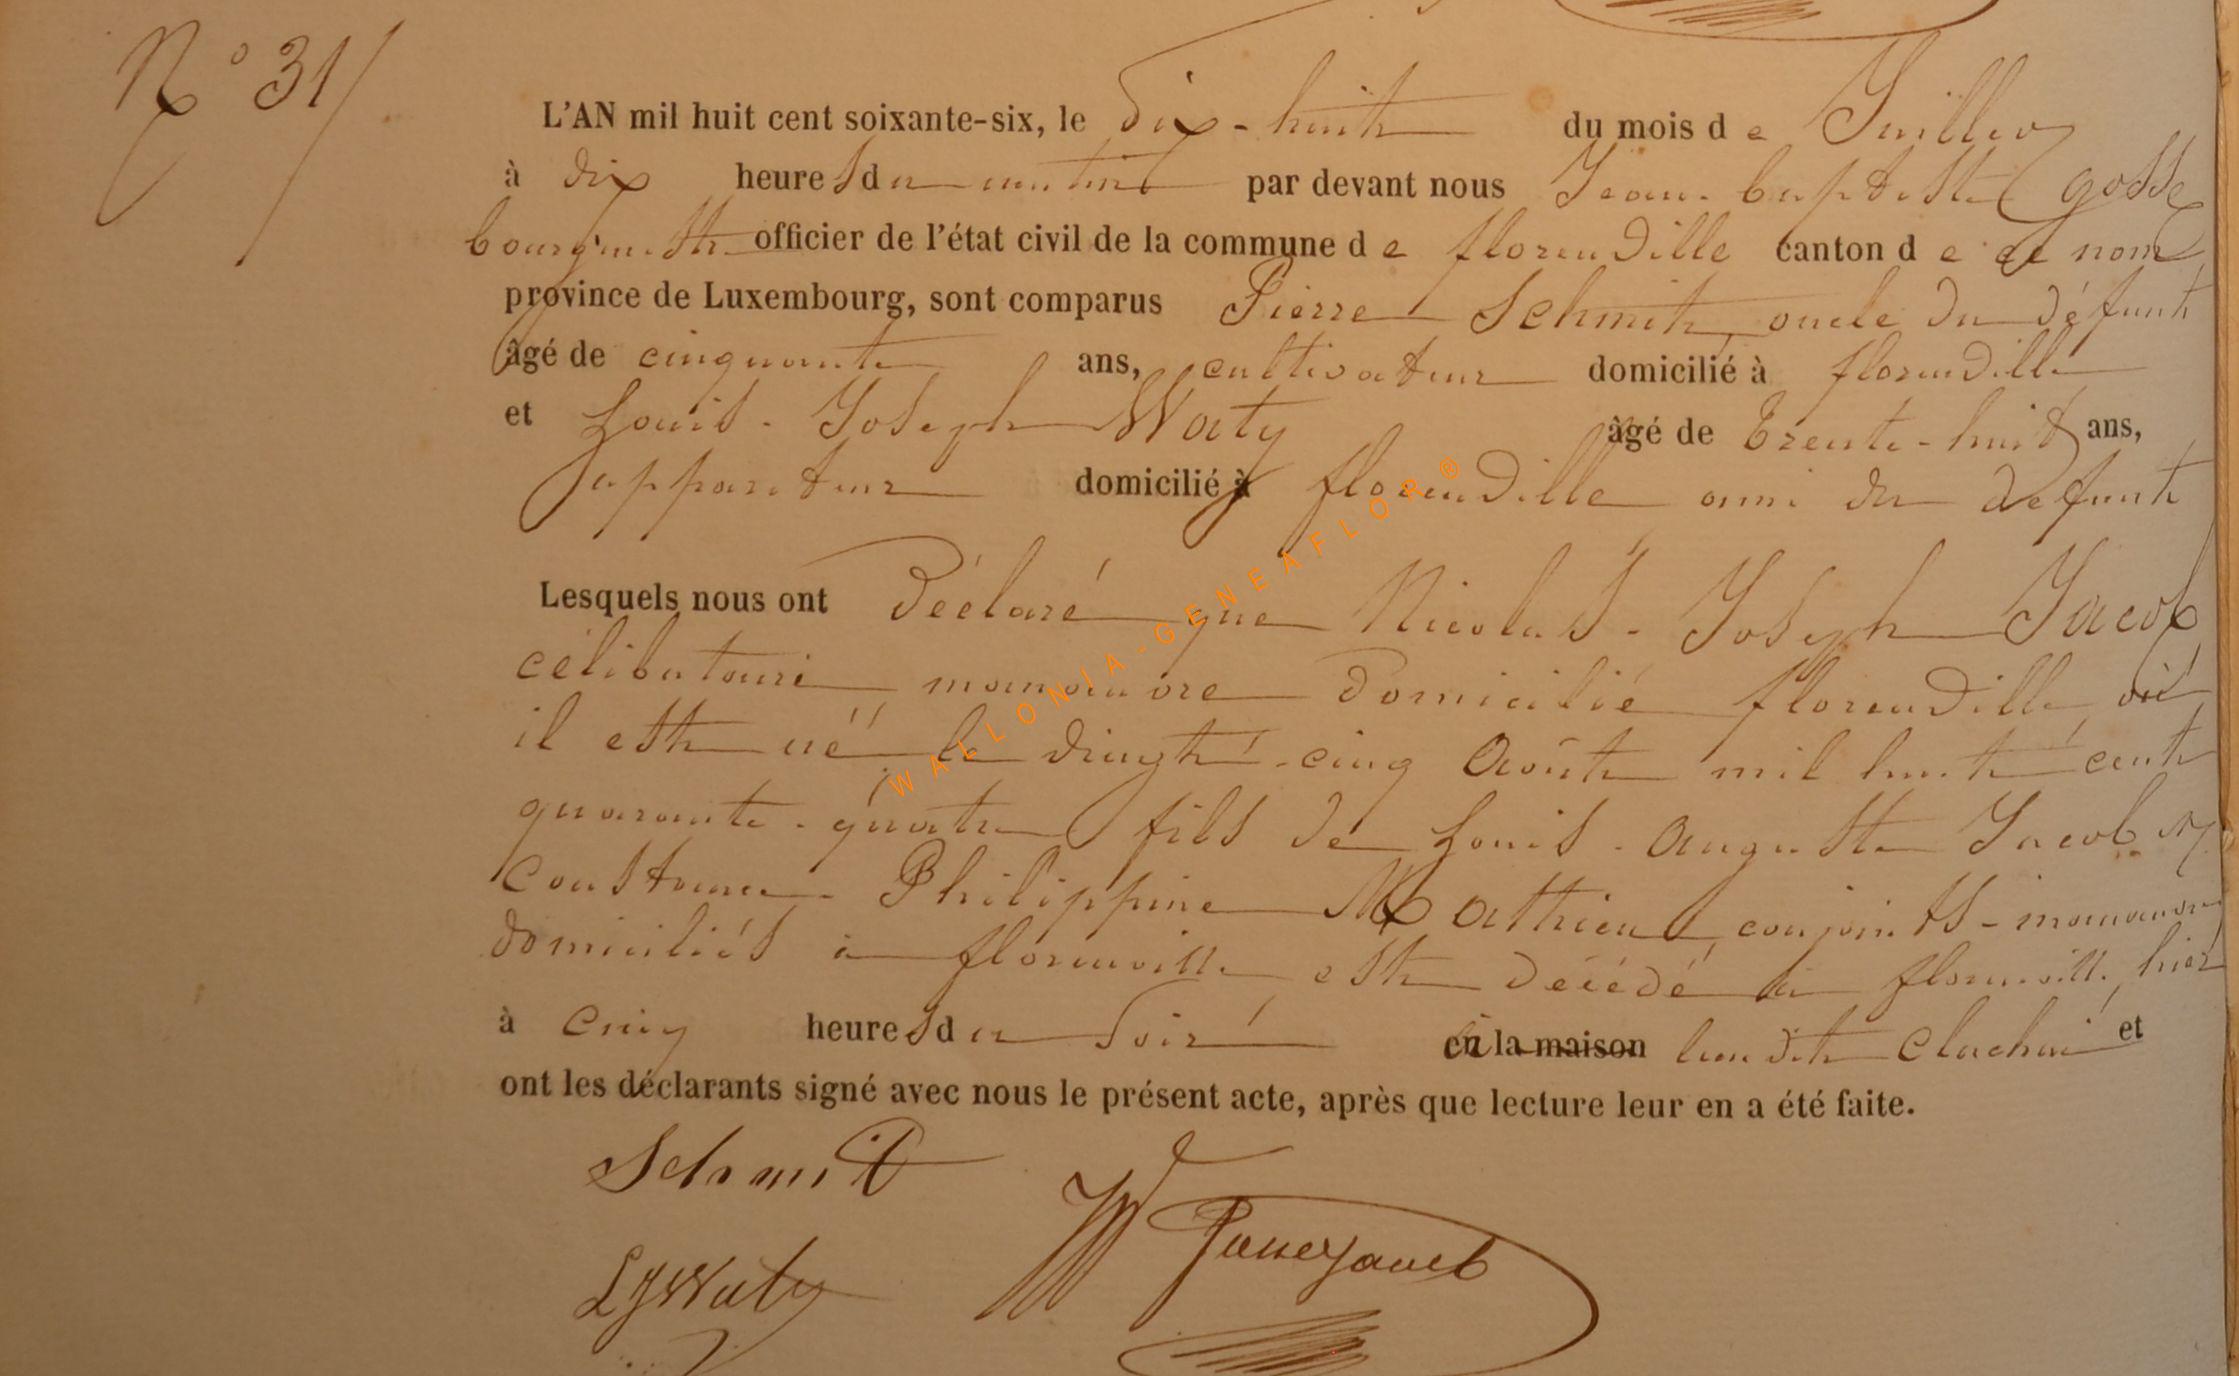 N° 31
L'AN mil huit cent soixante-six, le dix-huit du mois de Juillet
à dix heures du matin par devant nous Jean-baptiste gosse
bourgmestre officier de l'état civil de la commune de florenville canton de ce nom
province de Luxembourg, sont comparus Pierre Schmit, oncle du défunt
âgé de cinquante ans, cultivateur domicilié à florenville
et Louis-Joseph Waty âgé de trente-huit ans,
appariteur domicilié à florenville ami du defunt
Lesquels nous ont déclaré que Nicolas-Joseph Jacob
célibataire manœuvre domicilié florenville où
il est né le vingt-cinq Août mil huit cent
quarante-quatre fils de Louis-Auguste Jacob et
Constance-Philippine Mathieu, conjoints-manœuvres
domiciliés à florenville est décédé à florenville hier
à cinq heures du soir en la maison lieu dit et
ont les déclarants signé avec nous le présent acte, après que lecture leur en a été faite.
Schmit
LJWaty
WALLONIA-GENEAFLOR®